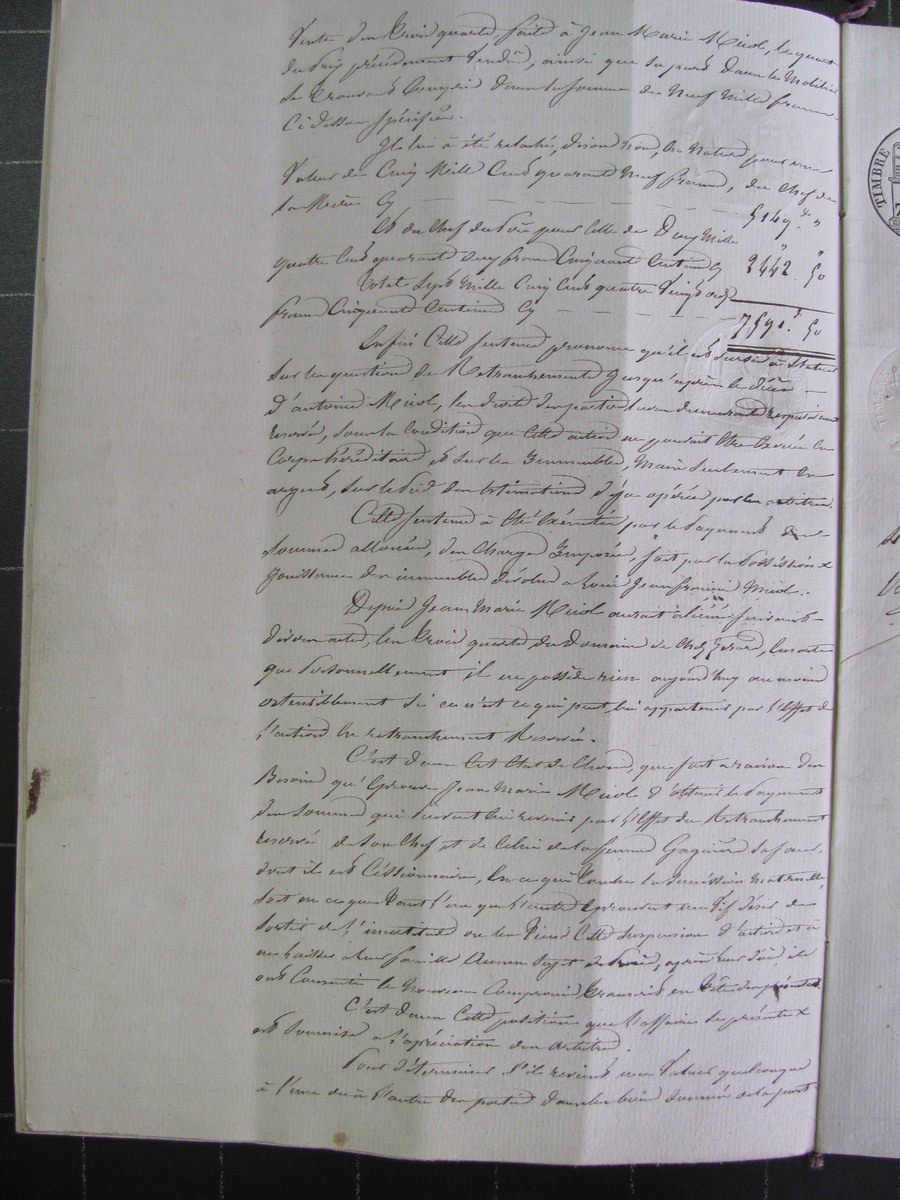 Vente des trois quarts, faite à Jean Marie Miol, le quart
du prix précédement vendu, ainsi que sa part dans le mobilier
se trouvant compris dans la somme de Neuf Mille francs
Ci dessus spécifiée.
Il lui à été relaché, disons nous, en Nature pour une
Valeur de Cinq Mille Cent quarante Neuf francs, du Chef de
la Mère Cy 5149 f "
Et du Chef du Père pour celle de Deux Mille
quatre Cent quarante deux francs Cinquante Centimes Cy 2442 " 50
Total Sept Mille Cinq Cent quatre Vingt onze
francs Cinquante Centimes Cy 7591 f 50
Enfin Cette sentence prononce qu'il est sursis à Statuer
Sur la question de Retranchement jusqu'après le décès
d'antoine Miol, les droits des parties leur demeurant respectivement
reservés, sous la Condition que Cette action ne pourait être Exercée en
Corps héréditaires et sur les Immeubles, mais seulement en
argent, sur le pied des Estimations déja opérées par les arbitres.
Cette sentence à été Exécutée par le payement des
sommes allouées, des Charges Imposées, soit par la possession &
Jouissance des immeubles dévolus a Louis Jean Miol.
Depuis Jean Marie Miol aurait aliéné suivant
divers actes, les trois quarts du Domaine de Chez , ensorte
que personnellement il ne possède rien aujourd'huy au moins
ostensiblement Si ce n'est ce qui peut lui appartenir par l'Effet de
l'action En retranchement Reservée.
C'est dans Cet Etat de Choses, que soit a raison du
Besoin qu'éprouve Jean Marie Miol d'obtenir le payement
des sommes qui peuvent lui revenir par l'Effet du Retranchement
reservé de son Chef et de Celui de la femme Gagnière sa soeur,
dont il est Cessionnaire, En ce qui touche la succession Maternelle,
soit en ce que tant l'une que l'autre éprouvent un vif désir de
Sortir de l'incertitude ou les tient Cette suspension d'action et à
ne laisser a leur famille Aucun Sujet de , après leur décès, ils
ont Consenti le nouveau Compromis transcrit en tête des présentes.
C'est dans Cette position que l'affaire se présente &
est soumise a l'apréciation des arbitres.
Pour déterminer s'il revient une Valeur quelconque
à l'une ou à l'autre des parties dans les biens de la part
TIMBRE